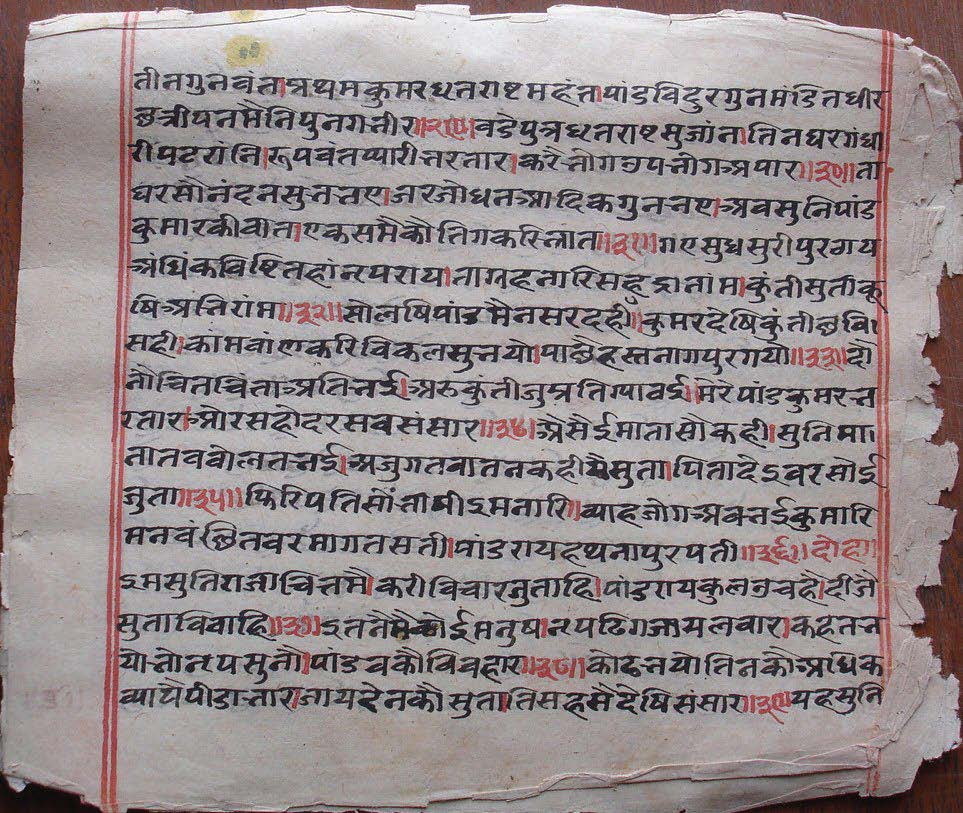 तीनगुनवंत।प्रथमकुमरधृतराष्टमहंत।पांडविदुरगुनमंडितधीर
छत्रीपनमैनिपुनगनीर॥२९॥वडेपुत्रधृतराष्टसुजांन।तिनघरगंधा
रीपटरांनि।रूपवंतप्यारीभरतार।करैभोगनृपभोगअपार॥३०॥ता
घरसौनंदनसुभभए।जरजोधनआदिकगुननए।अवसुनिपांड
कुमारकीवात।एकसमैकौतिगकरिभ्रांत॥३१॥गएसुधसुरीपुरगय
अंधिकविष्टितहांनृपराय।ताग्रहनारिसहद्रानांम।कुंतीसुताकू
षिअभिरांम॥३२॥सोलषिपांडमैनसरदही।कुमरदेषिकुंतीछवि
सही।कांमवांणकरिविकलसुभयो।पाछैहस्तनागपुरगयो॥३३॥दो
नौचितचिंताअतिभई।अरुकुंतीजुप्रतिग्यावई।मेरेपांडकुमरभ
रतार।औरसहोदरसवसंसार॥३४॥अैसैईमातासौकही।सुनिमा
तातववोलतभई।अजुगतवातनकहीयैसुता।पितादेइवरसोई
जुता॥३५॥फिरिपतिसौंभाषीइमनारि।व्याहजोगअवभईकुमारि
मनवंछितवरमागतसती।पांडरायहथनापुरपती॥३६॥दोहा॥
इमसुनिराजाचित्तमै।करीविचारजुताहि।पांडरायकुलउचहै।दीजै
सुताविवाहि॥३७॥इतनैमैकोईमनुष।नृपढिगआयलवार।कहतभ
योभोनृपसुनौ।पांडवकौविवहार॥३८॥कोढभयोतिनकौअधिक
व्यापैपीडाभार।जायदेनकौसुता।तिसहमैदेषिसंसार॥३९॥यहसुनि